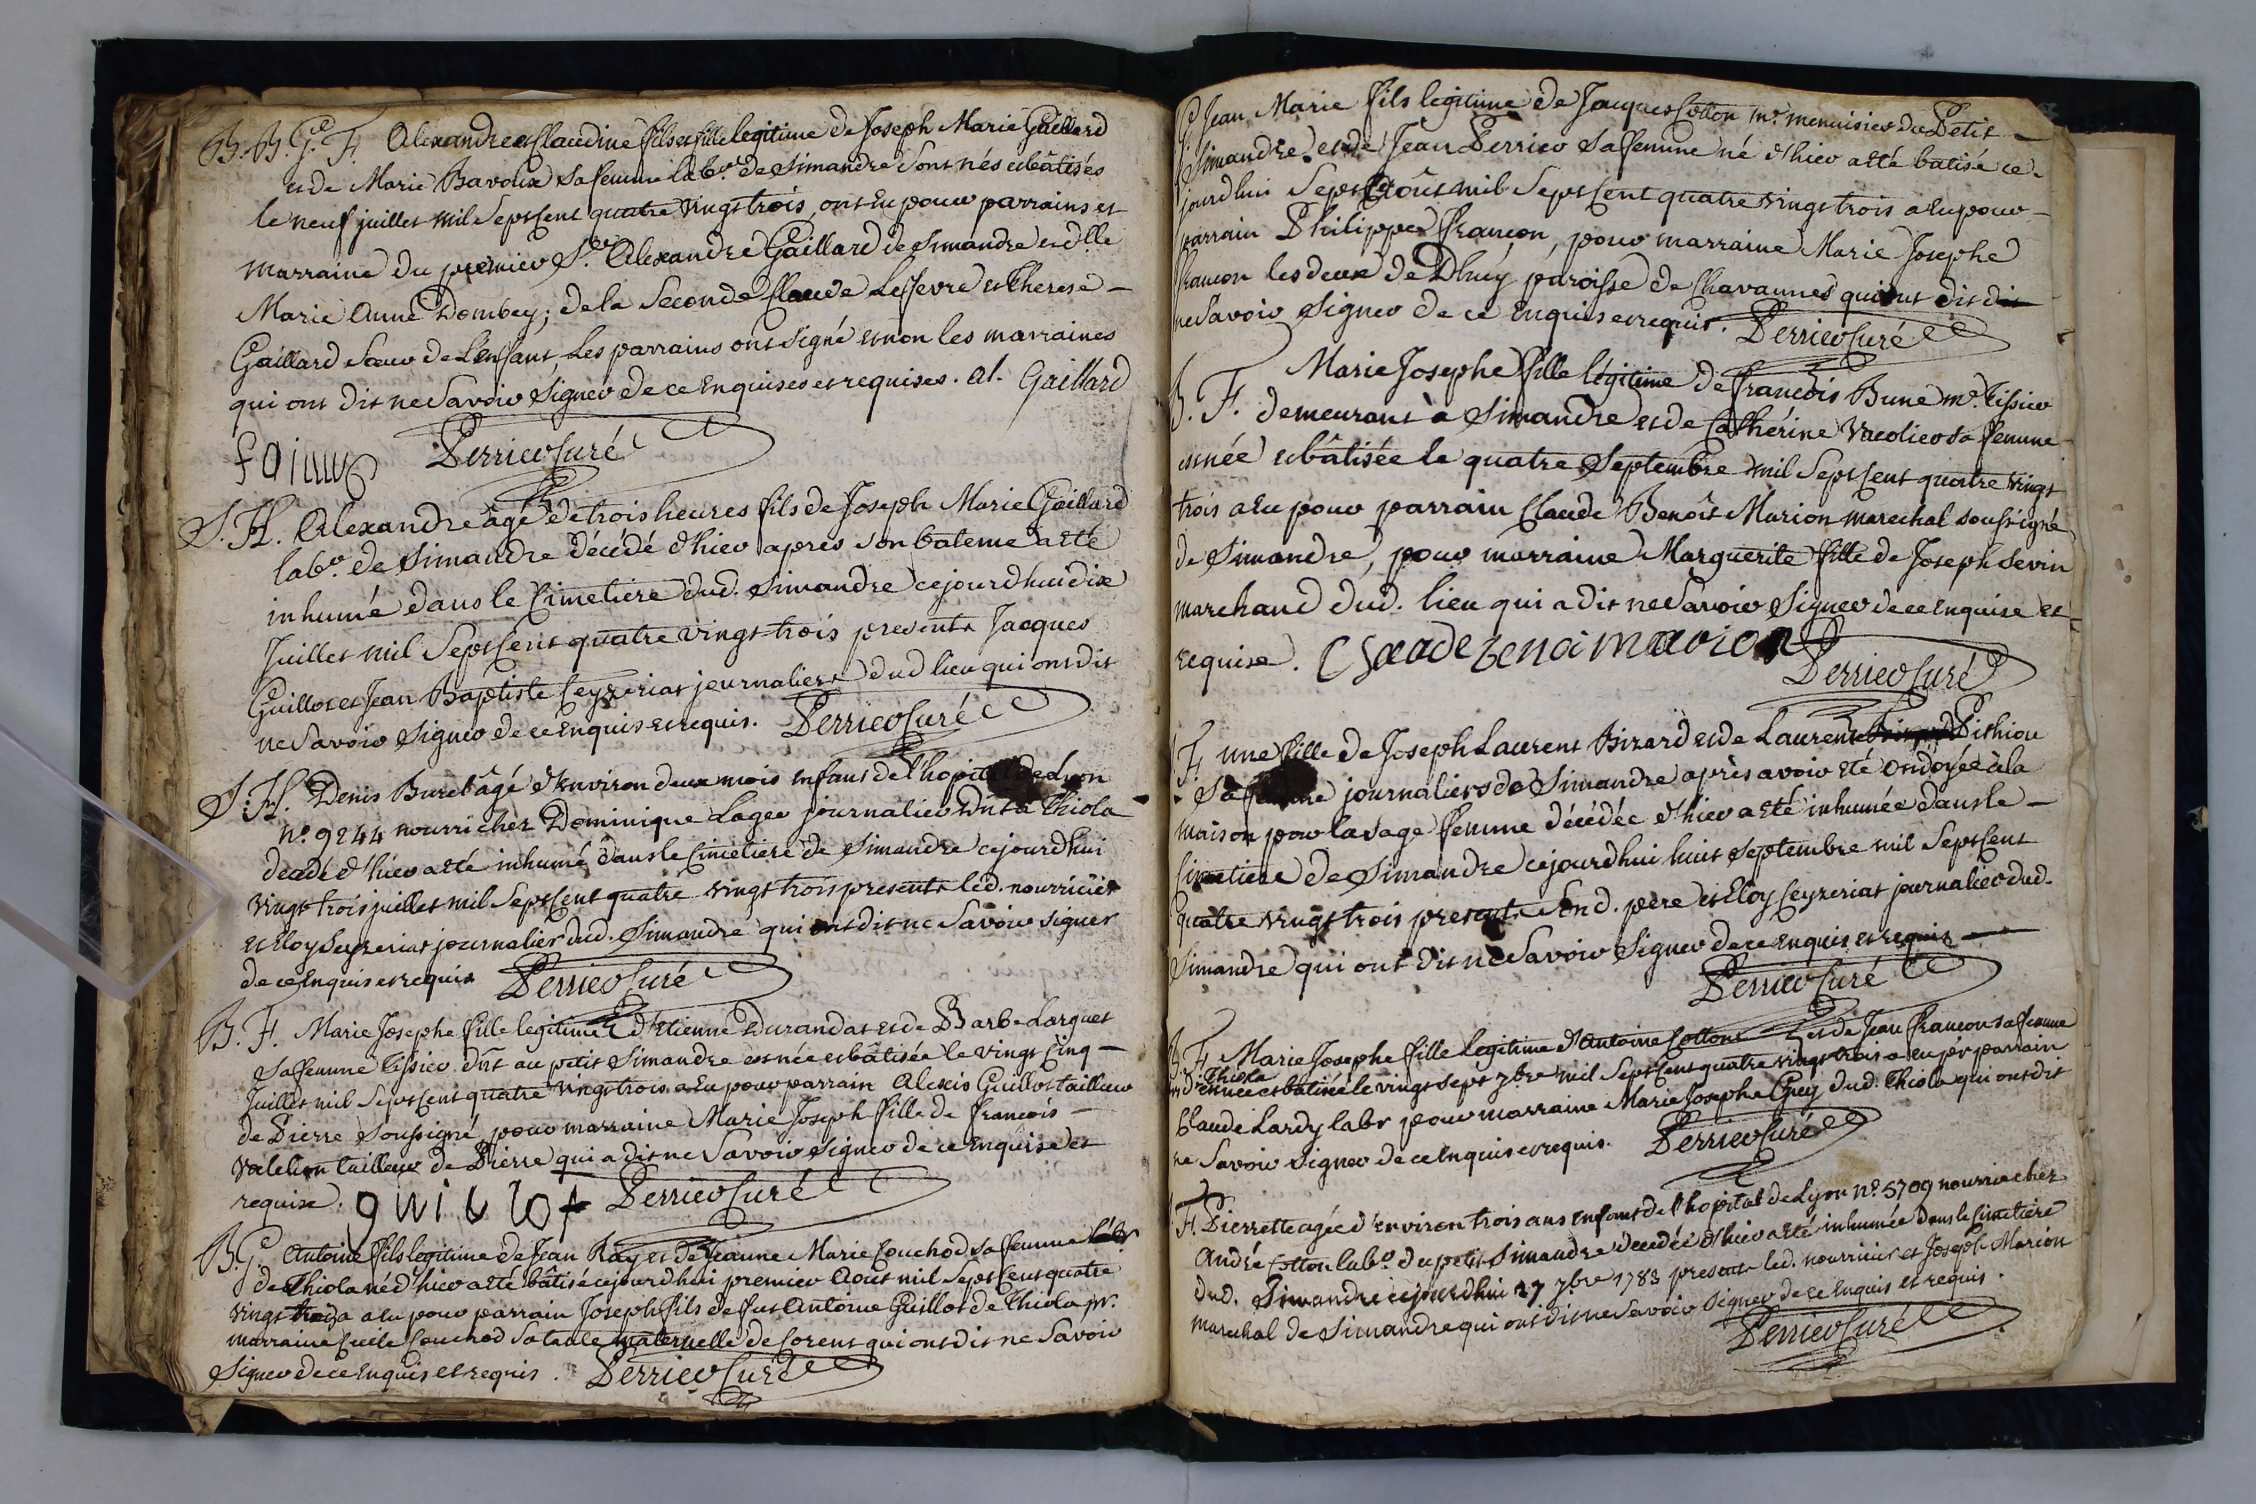 B. B. G. et F. Alexandre et Claudine fils et fille legitime de Joseph Marie Gaillard
et de Marie Bavoux sa femme labr. de Simandre sont nés et bâtisés
le neuf juillet mil sept cent quatre vingt trois, ont eu pour parrains et
marraine du premier Sr. Alexandre Gaillard de Simandre et dlle
Marie Anne Dombey; de la seconde Claude Lefevre et Therese
Gaillard sœur de l'enfant les parrains ont signé et non les marraines
qui ont dit ne savoir signer de ce enquises et requises. al. Gaillard
Perrier Curé
S. H. Alexandre âgé de trois heures fils de Joseph Marie Gaillard
labr. de Simandre décédé d'hier apres son bateme a eté
inhumé dans le Cimetiere dud. Simandre cejourdhui dix
Juillet mil sept cent quatre vingt trois presents Jacques
Guillot et Jean Baptiste Ceyzeriat journaliers dud lieu qui ont dit
ne savoir signer de ce enquis et requis. Perrier Curé
S. H. Denis Burel âgé d'environ deux mois enfant de l'hopital de Lyon
no. 9244 nourri chez Dominique Lager journalier dnt a Thiola
decedé d'hier a eté inhumé dans le Cimetiere de Simandre cejourdhui
vingt trois juillet mil sept cent quatre vingt trois presents led. nourricier
et Eloy Seyzeriat journalier dud. Simandre qui ont dit ne savoir signer
de ce enquis et requis Perrier Curé
B. F. Marie Josephe fille legitime d'Etienne Durandat et de Barbe Larguet
sa femme tissier dnt au petit Simandre est née et bâtisée le vingt cinq
Juillet mil sept cent quatre vingt trois a eu pour parrain Alexis Guillot tailleur
de Pierre soussigné pour marraine Marie Joseph fille de francois
tailleur de Pierre qui a dit ne savoir signer de ce enquise et
requise. guillot Perrier Curé
B. G. Antoine fils legitime de Jean Ray et de Jeanne Marie Couchod sa femme labr
de Thiola né d'hier a eté bâtisé cejourd'hui premier Aout mil sept cent quatre
vingt trois a eu pour parrain Joseph fils de ffut Antoine Guillot de Thiola pr.
marraine Couchod sa tante maternelle de Corent qui ont dit ne savoir
signer de ce enquis et requis. Perrier Curé
G. Jean Marie fils legitime de Jacques Cotton mr. menuisier du Petit
Simandre et de Jean Perrier sa femme né d'hier a eté batisé ce
jourdhui sept Août mil sept cent quatre vingt trois a eu pour
parrain Philippe francon, pour marraine Marie Josephe
francon les deux de Dhuy paroisse de Chavannes qui ont dit
ne savoir signer de ce enquis et requis. Perrier Curé
Marie Josephe fille légitime de francois Bune mr. tissier
B. F. demeurant à Simandre et de Cathérine sa femme
est née et bâtisée le quatre Septembre mil sept cent quatre vingt
trois a eu pour parrain Claude Benoît Marion marechal soussigné
de Simandre, pour marraine Marguerite fille de Joseph Sevin
marchand dud. lieu qui a dit ne savoir signer de ce enquise et
requise. Claude benoi marion
Perrier Curé
F. une fille de Joseph Laurent Bizard et de Laurence Pithiou
sa femme journaliers de Simandre après avoir eté ondoyée à la
maison pour la sage femme décédée d'hier a eté inhumée dans le
Cimetiere de Simandre cejourdhui huit Septembre mil sept cent
quatre vingt trois presents sond. père et Eloy Ceyzeriat journalier dud.
Simandre qui ont dit ne savoir signer de ce enquis et requis
Perrier Curé
B. F. Marie Josephe fille legitime d'Antoine Cotton et de Jean francon sa femme
Thiola
est née et batisée le vingt sept 7bre mil sept cent quatre vingt trois a eu pr parrain
Claude Lardy labr pour marraine Marie Josephe Grey dud. Thiola qui ont dit
ne savoir signer de ce enquis et requis. Perrier Curé
F. Pierrette agée d'environ trois ans enfant de l'hopital de Lyon no. 5709 nourrie chez
André Cotton labr. du petit Simandre decedée d'hier a eté inhumée dans le Cimetiere
dud. Simandre cejourdhui 27 7bre 1783 presents led. nourricier et Joseph Marion
marechal de Simandre qui ont dit ne savoir signer de ce enquis et requis.
Perrier Curé